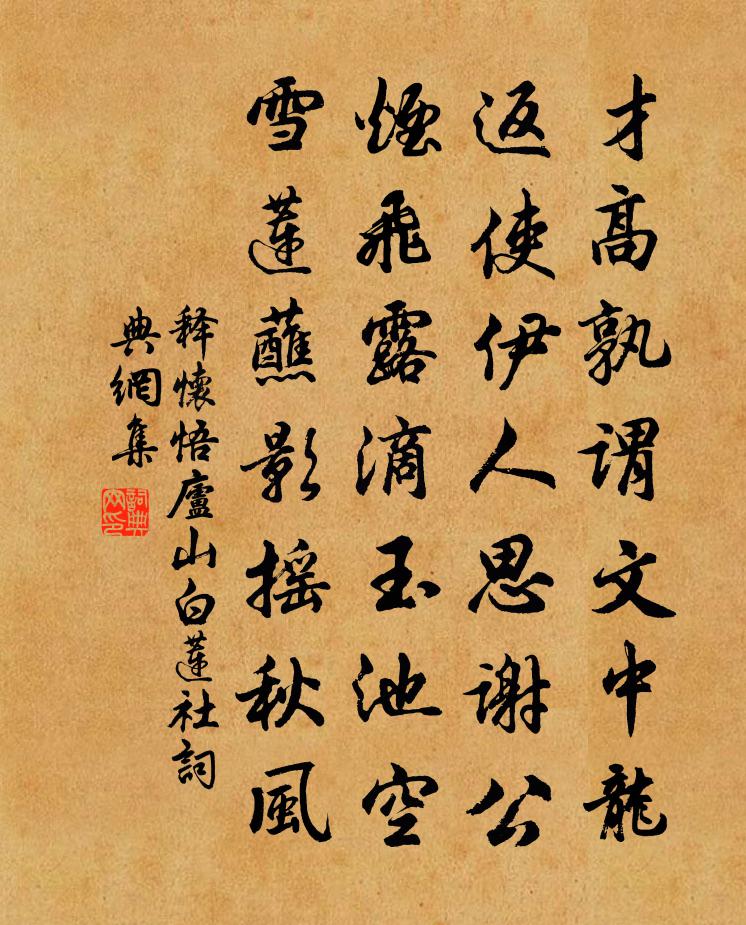 才高孰謂文中龍
返使伊人思謝公
煙飛露滴玉池空
雪蓮蘸影摇秋風
释懷悟廬山白蓮社詞
典網集
詞典網印